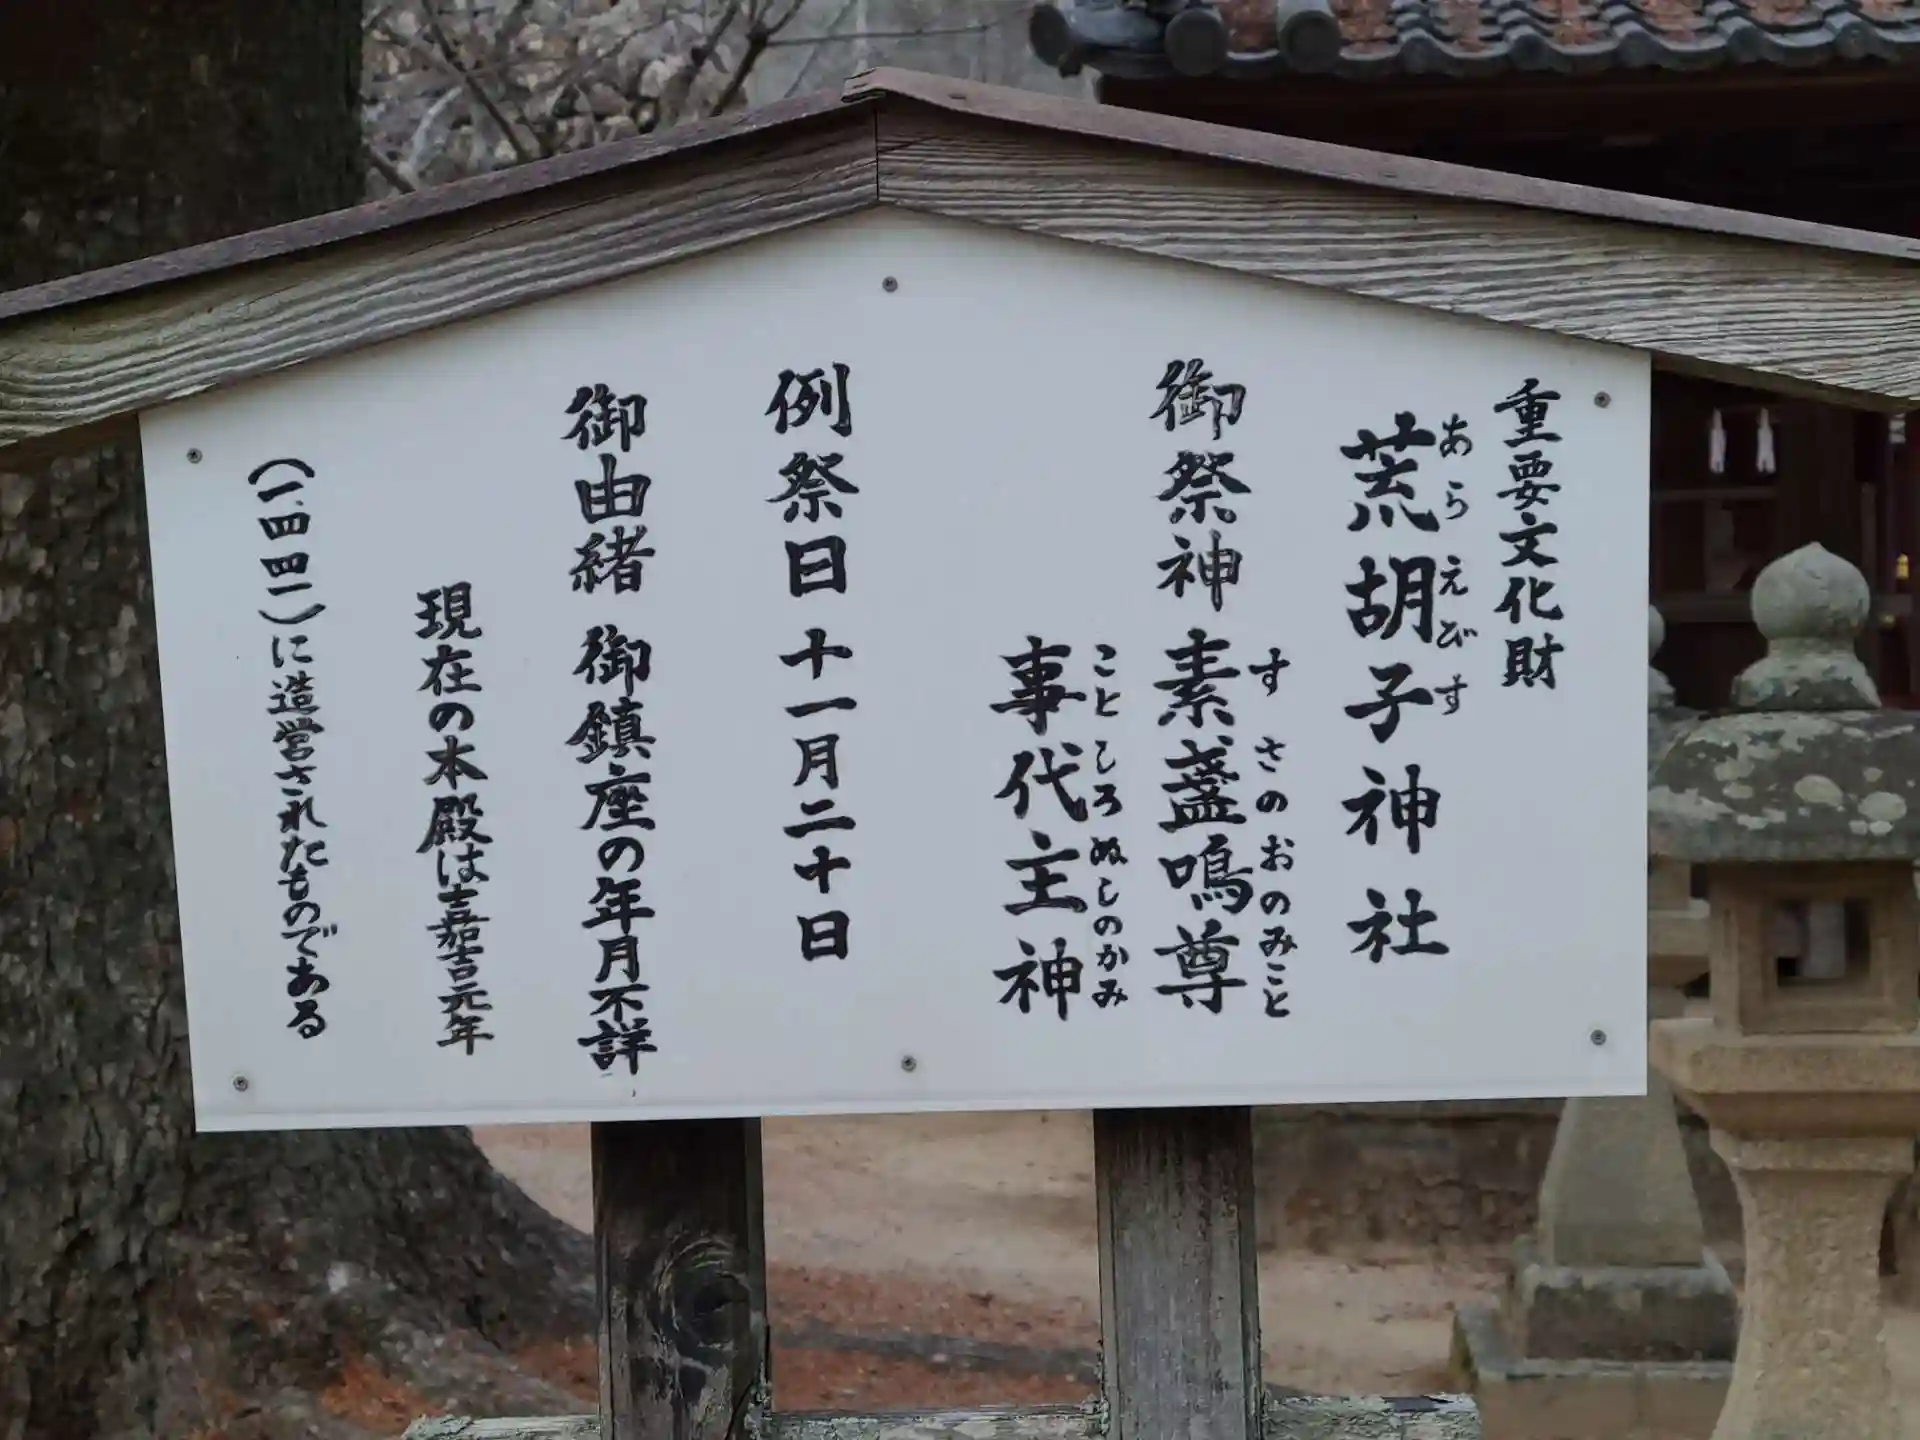 重要文化財
荒胡子神社
あらえびす
御祭神 素盞鳴尊
すさのおのみこと
事代主神
ことしろぬしのかみ
例祭日 十一月二十日
御由緒 御鎮座の年月不詳
現在の本殿は嘉吉元年
(一、四四一)に造営されたものである